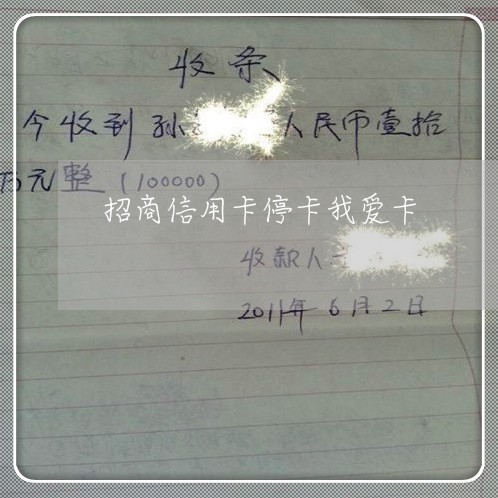 收条
今收到孙 人民币壹拾
万元整(100000)
招商信用卡停卡我爱卡
收款人
2011年6月2日